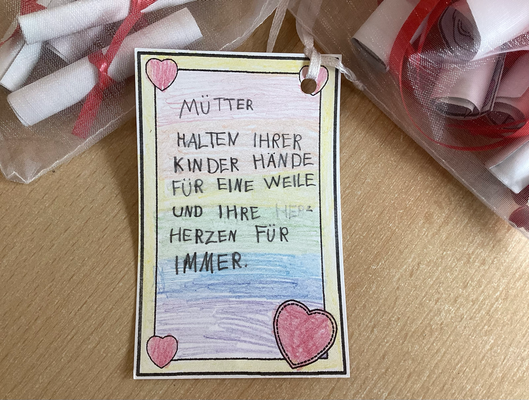 MÜTTER
HALTEN IHRER
KINDER HÄNDE
FÜR EINE WEILE
UND IHRE HERZ
HERZEN FÜR
IMMER.